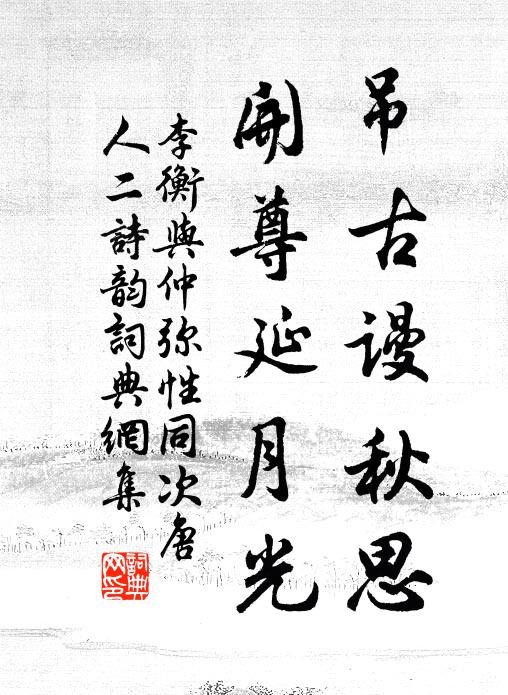 吊古谩秋思
開尊延月光
李衡與仲弥性同次唐
人二詩韵詞典網集
詞典
网印